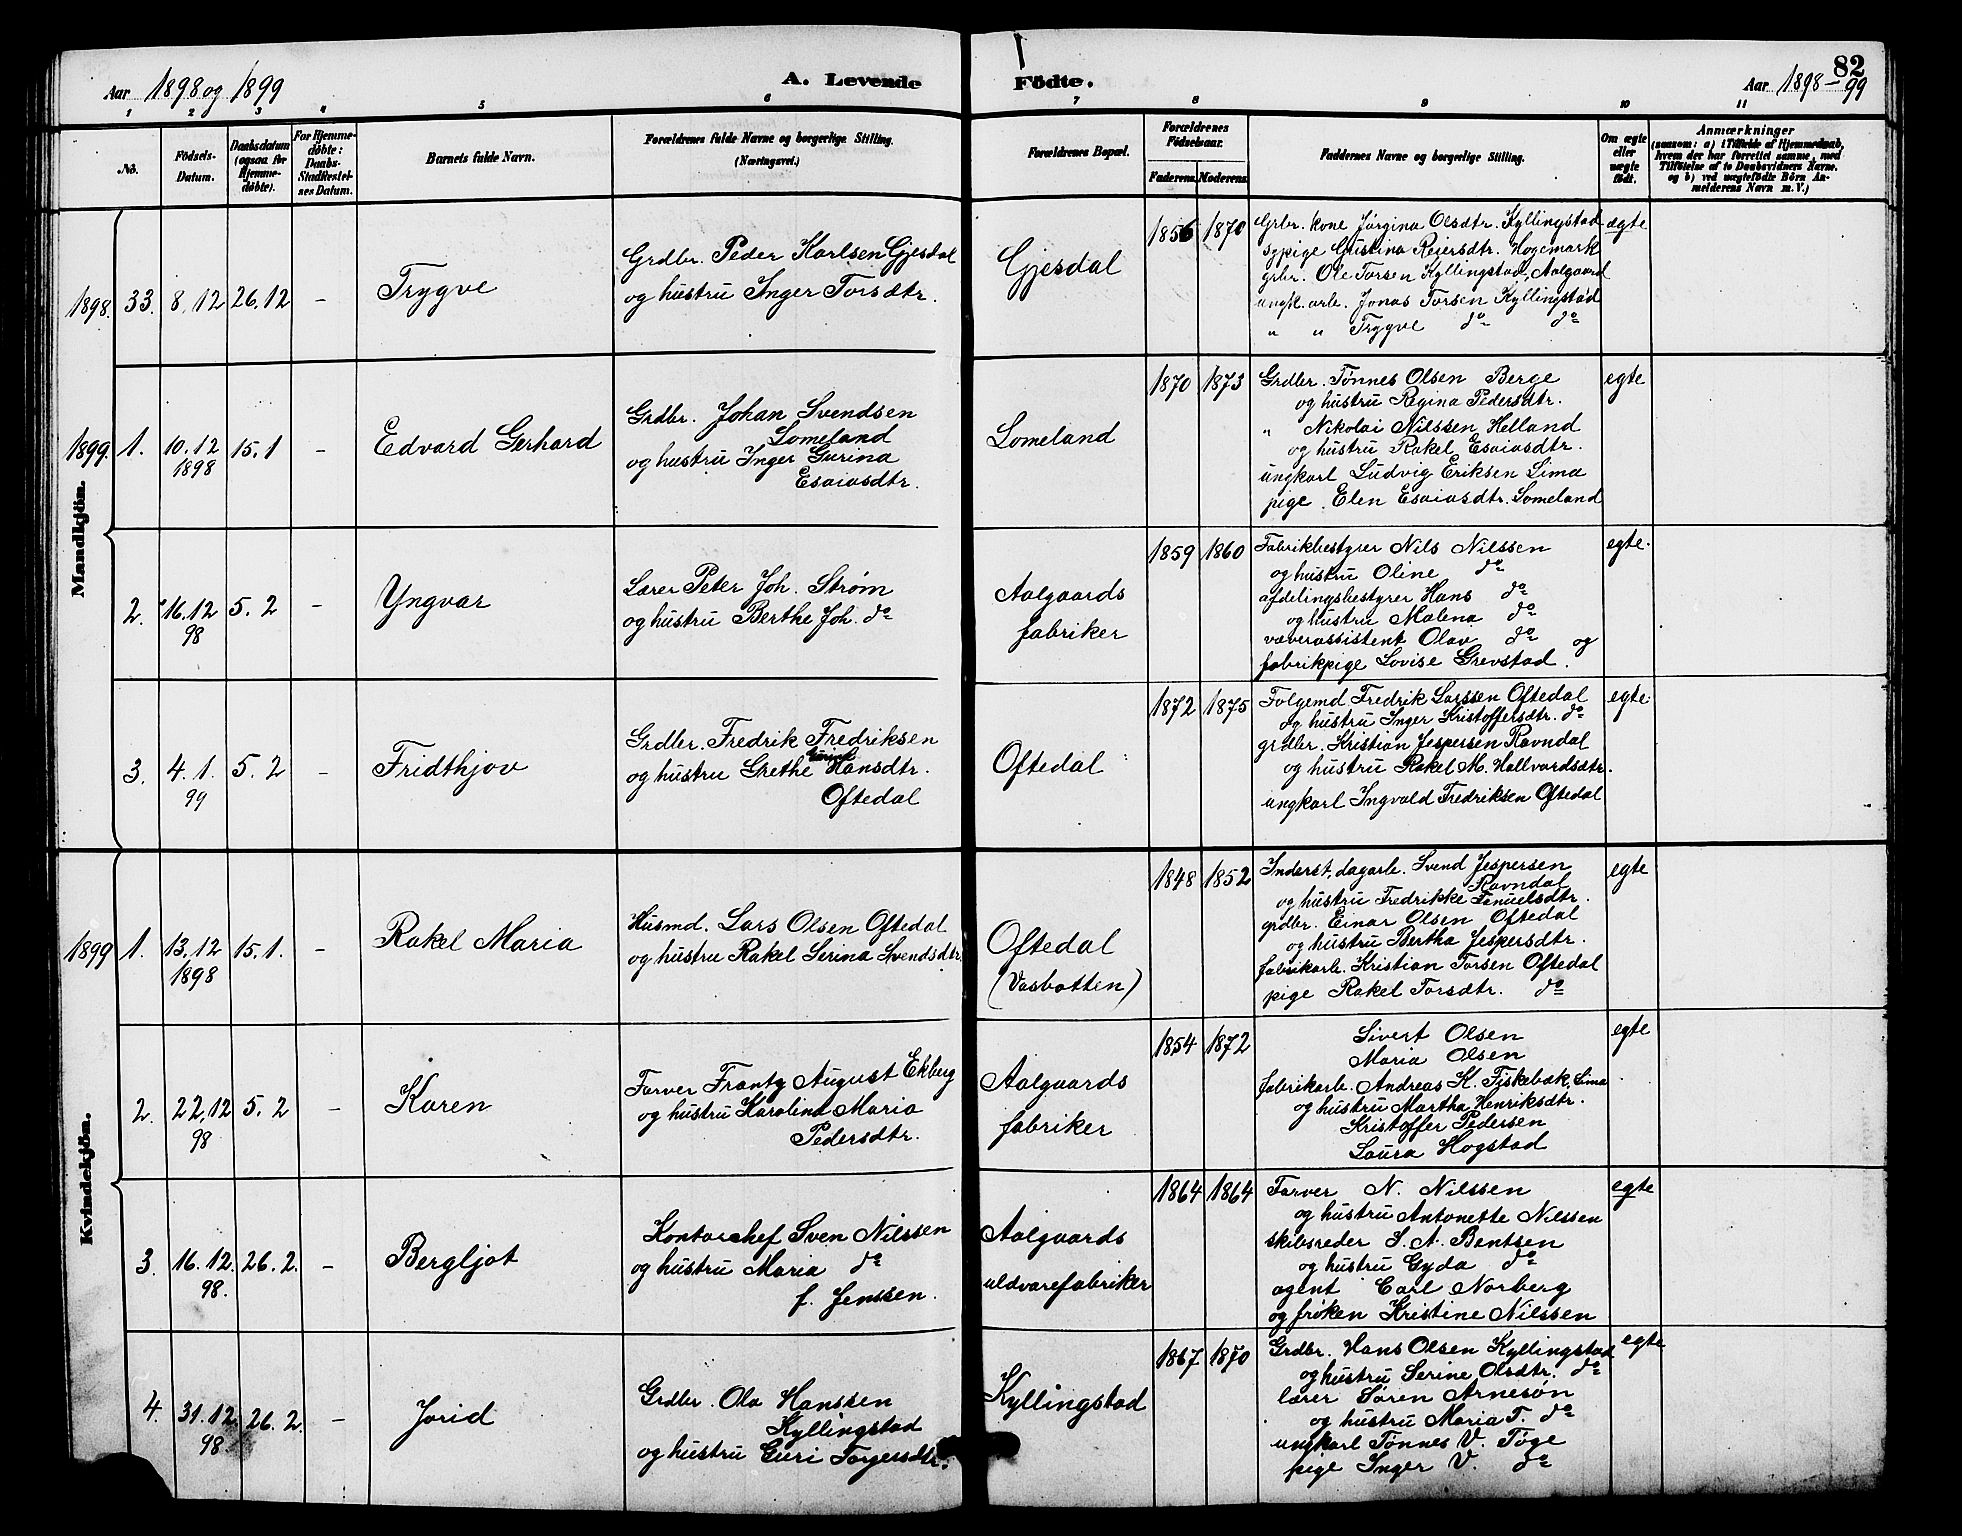 Aar 1898 og 1899
A. Levende
Födte.
82
Aar 1898–99
1 2 3 4 5 6 7 8 9 10 11
No.
Födsels-
Datum.
Daabsdatum
(ogsaa for
Hjemme-
döbte).
For Hjemme-
döbte:
Daabs-
Stadfæstel-
ses Datum.
Barnets fulde Navn.
Forældrenes fulde Navne og borgerlige Stilling.
(Næringsvei.)
Forældrenes Bopæl.
Forældrenes
Födselsaar.
Faderens. Moderens.
Faddernes Navne og borgerlige Stilling.
Om ægte
eller
uægte
födt.
Anmærkninger
(saasom: a) i Tilfælde af Hjemmedaab,
hvem der har forrettet samme, med
Tilföielse af to Daabsvidners Navne.
og b) ved uægtefödte Börn An-
melderens Navn m. V.)
Mandkjön.
1898. 33. 8,12 26.12 –
Trygve
Grdbr. Peder Karlsen Gjesdal
og hustru Inger Torsdtr.
Gjesdal
1856 1870
Grbr. kone Jørgina Olsdtr. Kyllingstad
sypige Gustina Reiersdtr. Hogemark
grbr. Ole Torsen Kyllingstad, Aalgaard
ungk. arb. Jonas Torsen Kyllingstad
„ „ Trygve do do
ægte
1899. 1. 10.12 15.1 –
1898
Edvard Gerhard
Grdbr. Johan Svendsen
Lomeland
og hustru Inger Gurina
Esaiasdtr.
Lomeland
1870 1873
Grdbr. Tønnes Olsen Berge
og hustru Regina Pedersdtr.
„ Nikolai Nilssen Helland
og hustru Rakel Esaiasdtr.
ungkarl Ludvig Eriksen Lima
pige Elen Esaiasdtr. Lomeland
egte
2. 16.12 5.2 –
98
Yngvar
Lærer Peter Joh. Strøm
og hustru Berthe Joh. do
Aalgaards
fabriker
1859 1860
Fabrikbestyrer Nils Nilssen
og hustru Oline do
afdelingsbestyrer Hans do
og hustru Malena do
væverassistent Olav do og
fabrikpige Lovise Grevstad.
egte.
3. 4.1. 5.2 –
99
Fridthjov
Grdbr. Fredrik Fredriksen
og hustru Grethe Hansdtr.
Oftedal
Oftedal
1872 1875
Folgemd. Fredrik Larssen Oftedal
og hustru Inger Kristoffersdtr. do
grdbr. Kristian Jespersen Ravndal
og hustru Rakel M. Hallvardsdtr.
ungkarl Ingvald Fredriksen Oftedal
egte.
Kvindekjön.
1899 1. 13.12 15.1. –
1898
Rakel Maria
Husmd. Lars Olsen Oftedal
og hustru Rakel Serina Svendsdtr.
Oftedal
(Vasbotten)
1848 1852
Inderst, dagarb. Svend Jespersen
Ravndal
og hustru Fredrikke Fanuelsdtr.
grdbr. Einar Olsen Oftedal
og hustru Bertha Jespersdtr.
fabrikarb. Kristian Torsen Oftedal
pige Rakel Torsdtr. do
egte
2. 22,12 5.2 –
98
Karen
Farver Frantz August Ekberg
og hustru Karolina Maria
Pedersdtr.
Aalgaards
fabriker
1854 1872
Sivert Olsen
Maria Olsen
fabrikarb. Andreas K. Fiskebæk, Lima
og hustru Martha Henriksdtr.
Kristoffer Pedersen
Laura Hogstad
egte
3. 16.12. 26.2. –
98.
Bergljot
Kontorchef Sven Nilssen
og hustru Maria do
f. Jenssen.
Aalgaards
uldvarefabriker
1864 1864
Farver N. Nilssen
og hustru Antonette Nilssen
skibsreder S. A. Bentsen
og hustru Gyda do
agent Carl Norberg
og frøken Kristine Nilssen
egte
4. 31.12. 26.2. –
98.
Jorid
Grdbr. Ola Hanssen
Kyllingstad
og hustru Guri Torgersdtr.
Kyllingstad
1867. 1870
Grdbr. Hans Olsen Kyllingstad
og hustru Serine Olsdtr. do
lærer Søren Arnesøn
og hustru Maria T. do
ungkarl Tønnes V. Tøge
pige Inger V. do
egte